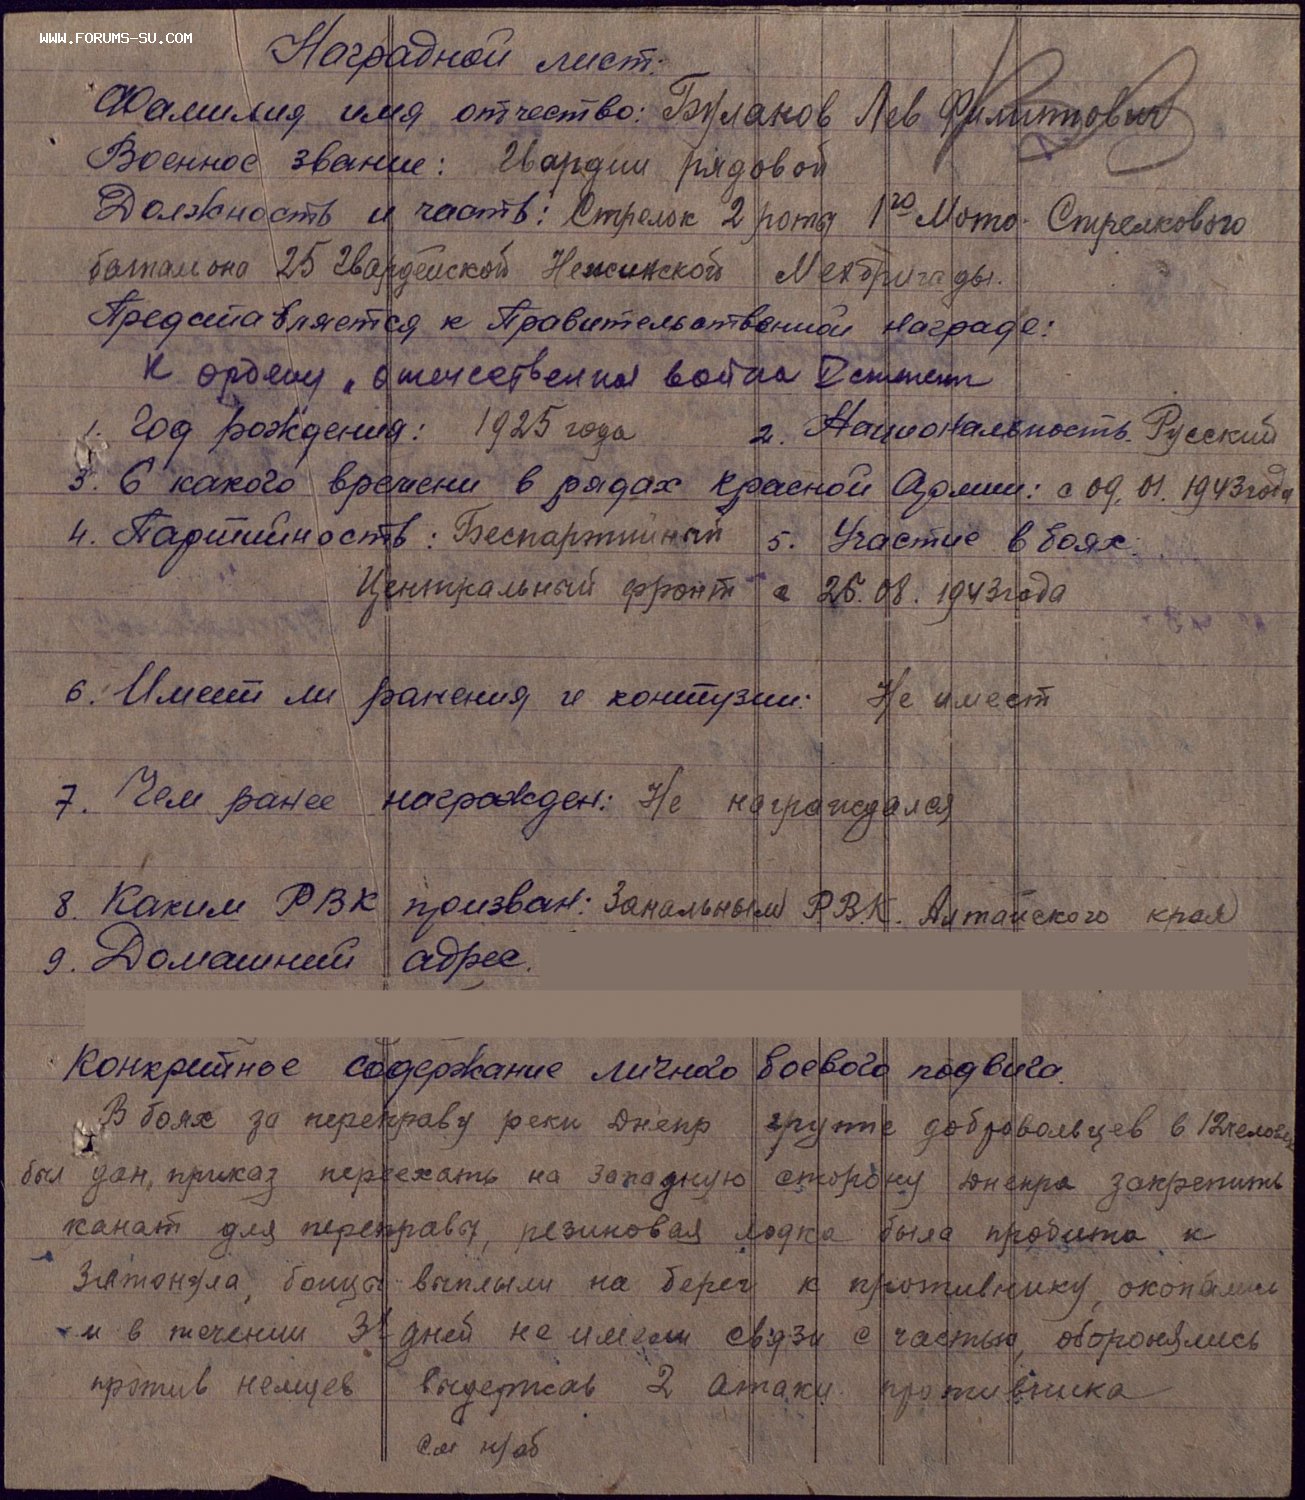 WWW.FORUMS-SU.COM
Наградной лист:
Фамилия имя отчество: Булаков Лев Филиппович
Военное звание: Гвардии рядовой
Должность и часть: Стрелок 2 роты 1го Мото-Стрелкового
баталиона 25 Гвардейской Нежинской Мехбригады.
Представляется к Правительственной награде:
К ордену „Отечественная война II степени
1. Год рождения: 1925 года 2. Национальность. Русский
3. С какого времени в рядах Красной Армии: с 09.01.1943 года
4. Партийность: Беспартийный 5. Участие в боях:
Центральный фронт с 26.08.1943 года
6. Имеет ли ранения и контузии: Не имеет
7. Чем ранее награжден: Не награждался
8. Каким РВК призван: РВК. Алтайского края
9. Домашний адрес.
Конкретное содержание личного боевого подвига.
В боях за переправу реки Днепр группе добровольцев в 12 человек
был дан, приказ переехать на западную сторону Днепра закрепить
канат для переправы, резиновая лодка была пробита и
затонула, бойцы выплыли на берег к противнику, окопались
и в течении 3х дней не имели связи с частью, оборонялись
против немцев выдержав 2 атаки противника
см н/об